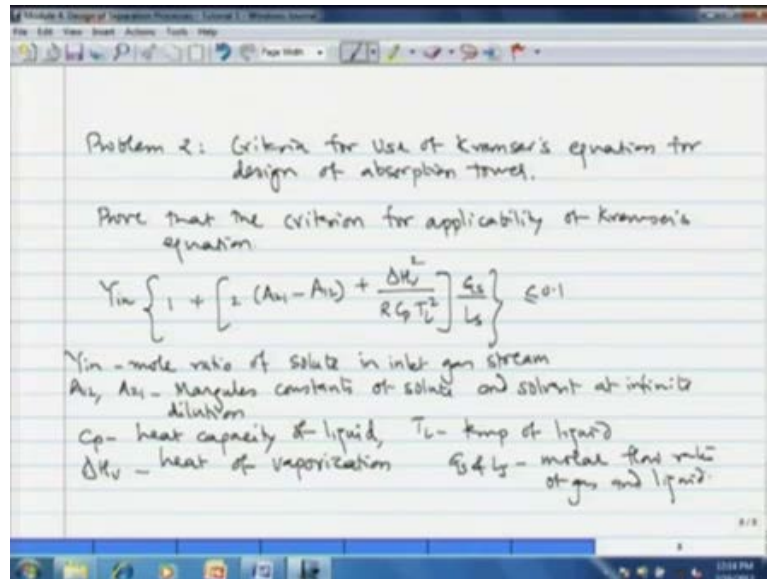 Module 4: Design of Separation Processes - Tutorial 1 - Windows Journal
File Edit View Insert Actions Tools Help
Page Width
Problem 2: Criteria for use of Kremser's equation for
design of absorption tower.
Prove that the criterion for applicability of Kremser's
equation.
Yin { 1 + [ 2 (A21 - A12) + ΔHv² / R Cp TL² ] Gs / Ls } ≤ 0.1
Yin - mole ratio of solute in inlet gas stream
A12, A21 - Margules constants of solute and solvent at infinite
dilution
Cp - heat capacity of liquid, TL - temp of liquid
ΔHv - heat of vaporization Gs & Ls - molar flow rates
of gas and liquid.